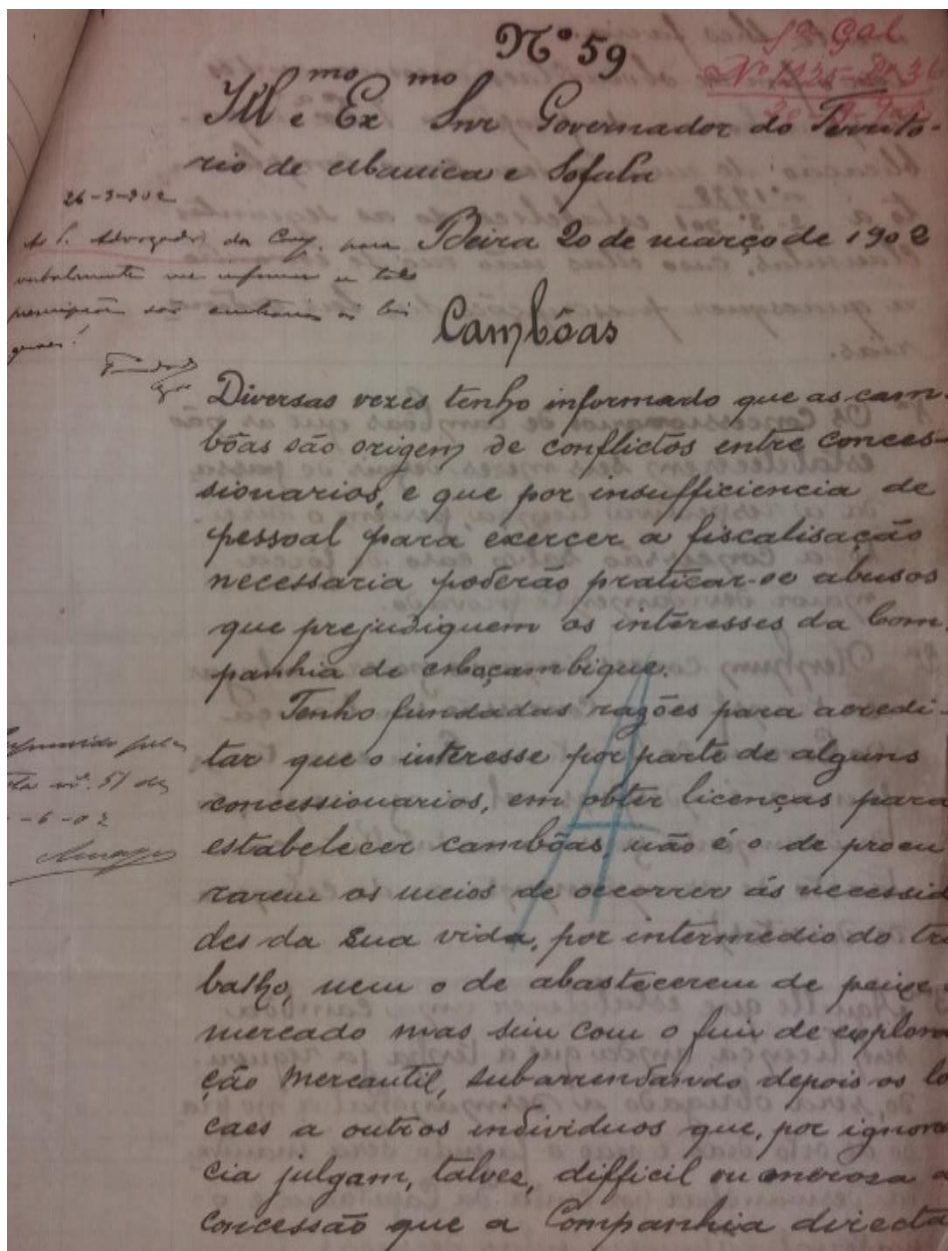 Nº 59
Sª Gal
Illmo e Exmo Snr Governador do Territo-
rio de Manica e Sofala
26-3-902
Beira 20 de março de 1902
Ao S. Advogado da Comp. para
verbalmente me informar se taes
são contrarias ás leis
geraes!
Cambôas
Diversas vezes tenho informado que as cam-
bôas são origem de conflictos entre conces-
sionarios, e que por insufficiencia de
pessoal para exercer a fiscalisação
necessaria poderão praticar-se abusos
que prejudiquem os interesses da Com-
panhia de Moçambique.
Tenho fundadas razões para acredi-
tar que o interesse por parte de alguns
concessionarios, em obter licenças para
estabelecer cambôas, não é o de procu
rarem os meios de occorrer ás necessid
des da sua vida, por intermedio do tra
balho, nem o de abastecerem de peixe o
mercado mas sim com o fim de explora
ção mercantil, subarrendando depois os lo
caes a outros individuos que, por ignora
cia julgam, talvez, difficil ou morosa a
concessão que a Companhia directa
nº. 51 de
-6-02